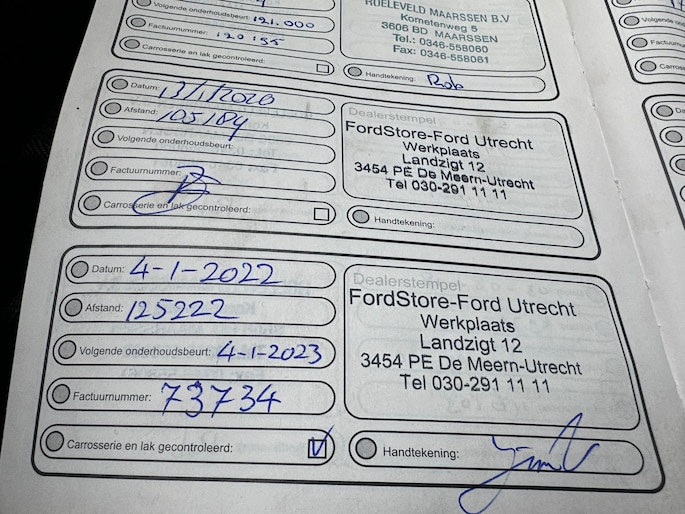 Volgende onderhoudsbeurt: 121.000
Factuurnummer: 120155
Carrosserie en lak gecontroleerd:
ROELEVELD MAARSSEN B.V
Kometenweg 5
3606 BD MAARSSEN
Tel.: 0346-558060
Fax: 0346-558061
Handtekening: Rob
Datum: 13/1/2020
Afstand: 105184
Volgende onderhoudsbeurt:
Factuurnummer:
Carrosserie en lak gecontroleerd:
Dealerstempel
FordStore-Ford Utrecht
Werkplaats
Landzigt 12
3454 PE De Meern-Utrecht
Tel 030-291 11 11
Handtekening:
Datum: 4-1-2022
Afstand: 125222
Volgende onderhoudsbeurt: 4-1-2023
Factuurnummer: 73734
Carrosserie en lak gecontroleerd:
Dealerstempel
FordStore-Ford Utrecht
Werkplaats
Landzigt 12
3454 PE De Meern-Utrecht
Tel 030-291 11 11
Handtekening: